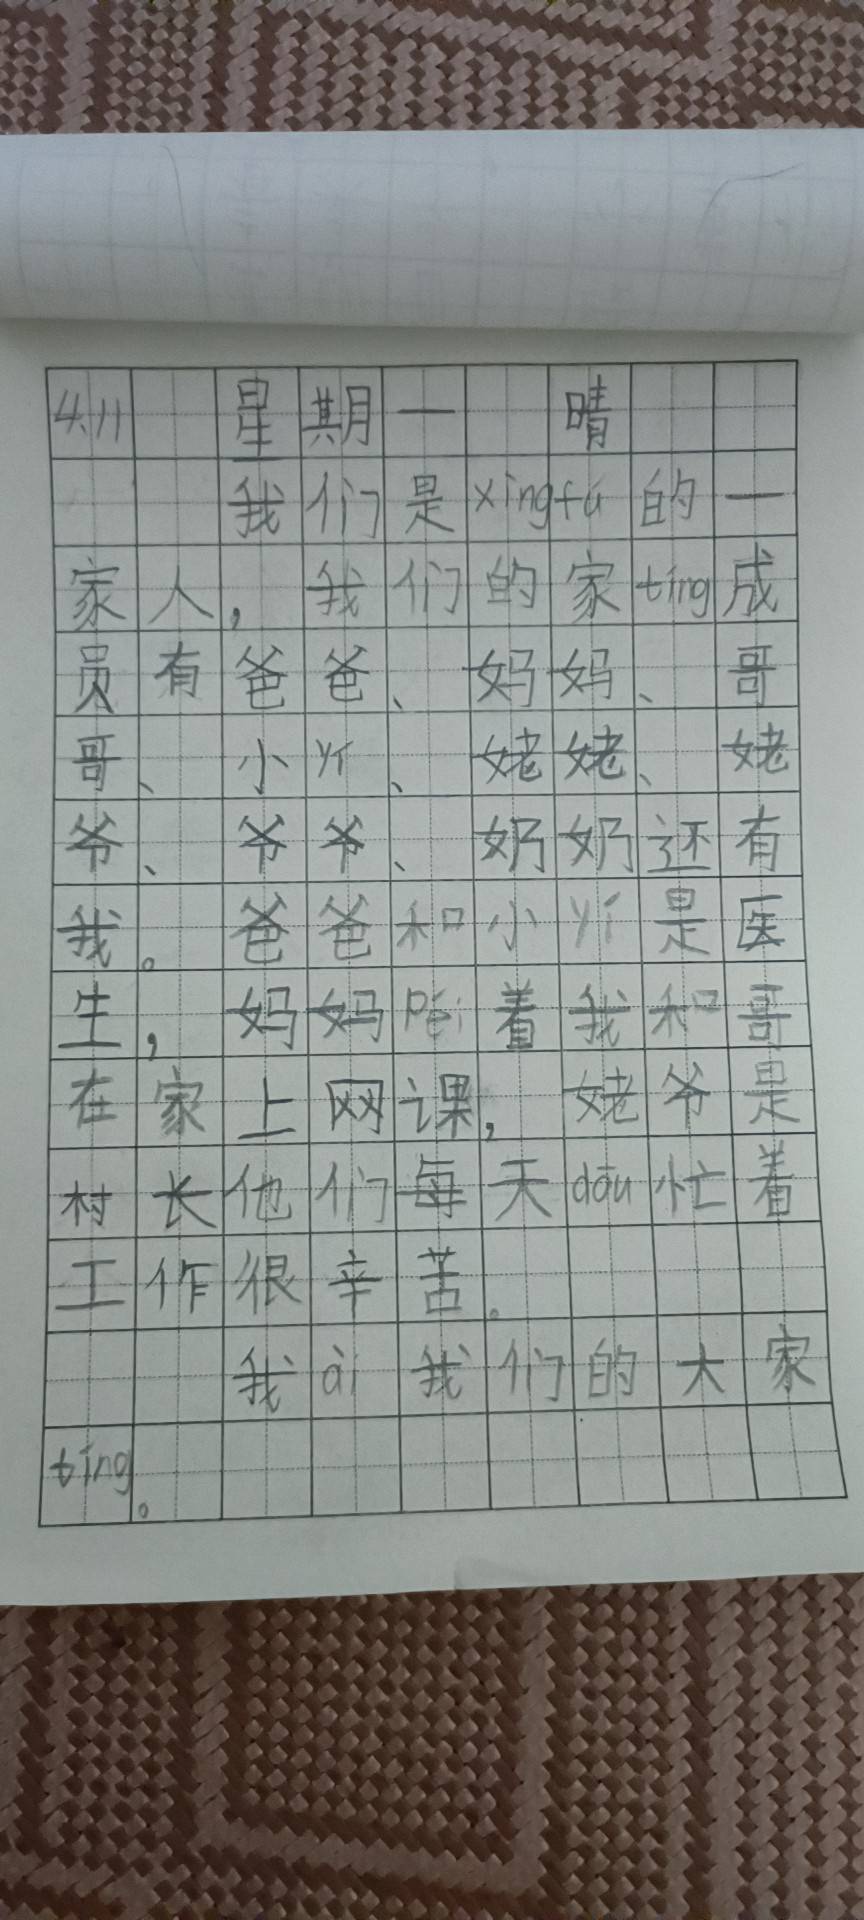 4.11 星期一 晴
我们是xìngfú的一
家人，我们的家tíng成
员有爸爸、妈妈、哥
哥、小yí、姥姥、姥
爷、爷爷、奶奶还有
我。爸爸和小yí是医
生，妈妈péi着我和哥
在家上网课，姥爷是
村长他们每天dōu忙着
工作很辛苦。
我ài我们的大家
tíng。